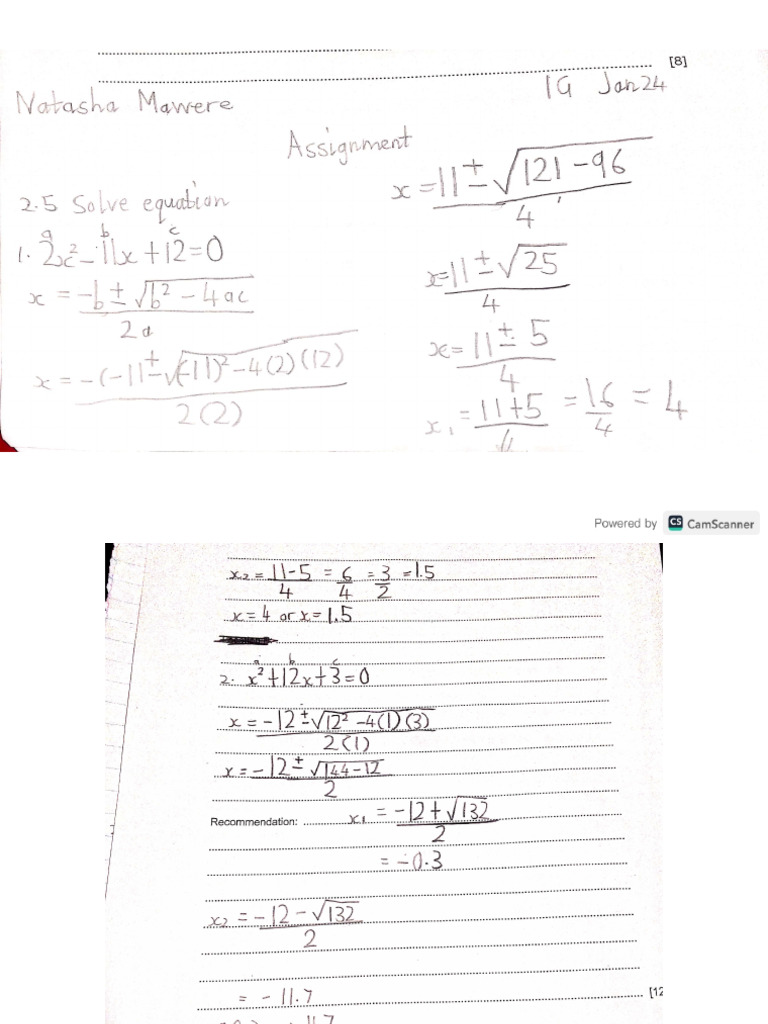 [8]
Natasha Mawere
1G Jan 24
Assignment
2.5 Solve equation
a b c
1. 2x² - 11x + 12 = 0
x = -b ± √b² - 4ac
2a
x = -(-11 ± √(-11)² - 4(2)(12)
2(2)
x = 11 ± √121 - 96
4
x = 11 ± √25
4
x = 11 ± 5
4
x₁ = 11 + 5 = 16 = 4
4 4
Powered by CS CamScanner
x₂ = 11 - 5 = 6 = 3 = 1.5
4 4 2
x = 4 or x = 1.5
a b c
2. x² + 12x + 3 = 0
x = -12 ± √12² - 4(1)(3)
2(1)
x = -12 ± √144 - 12
2
Recommendation: x₁ = -12 + √132
2
= -0.3
x₂ = -12 - √132
2
= -11.7
[12